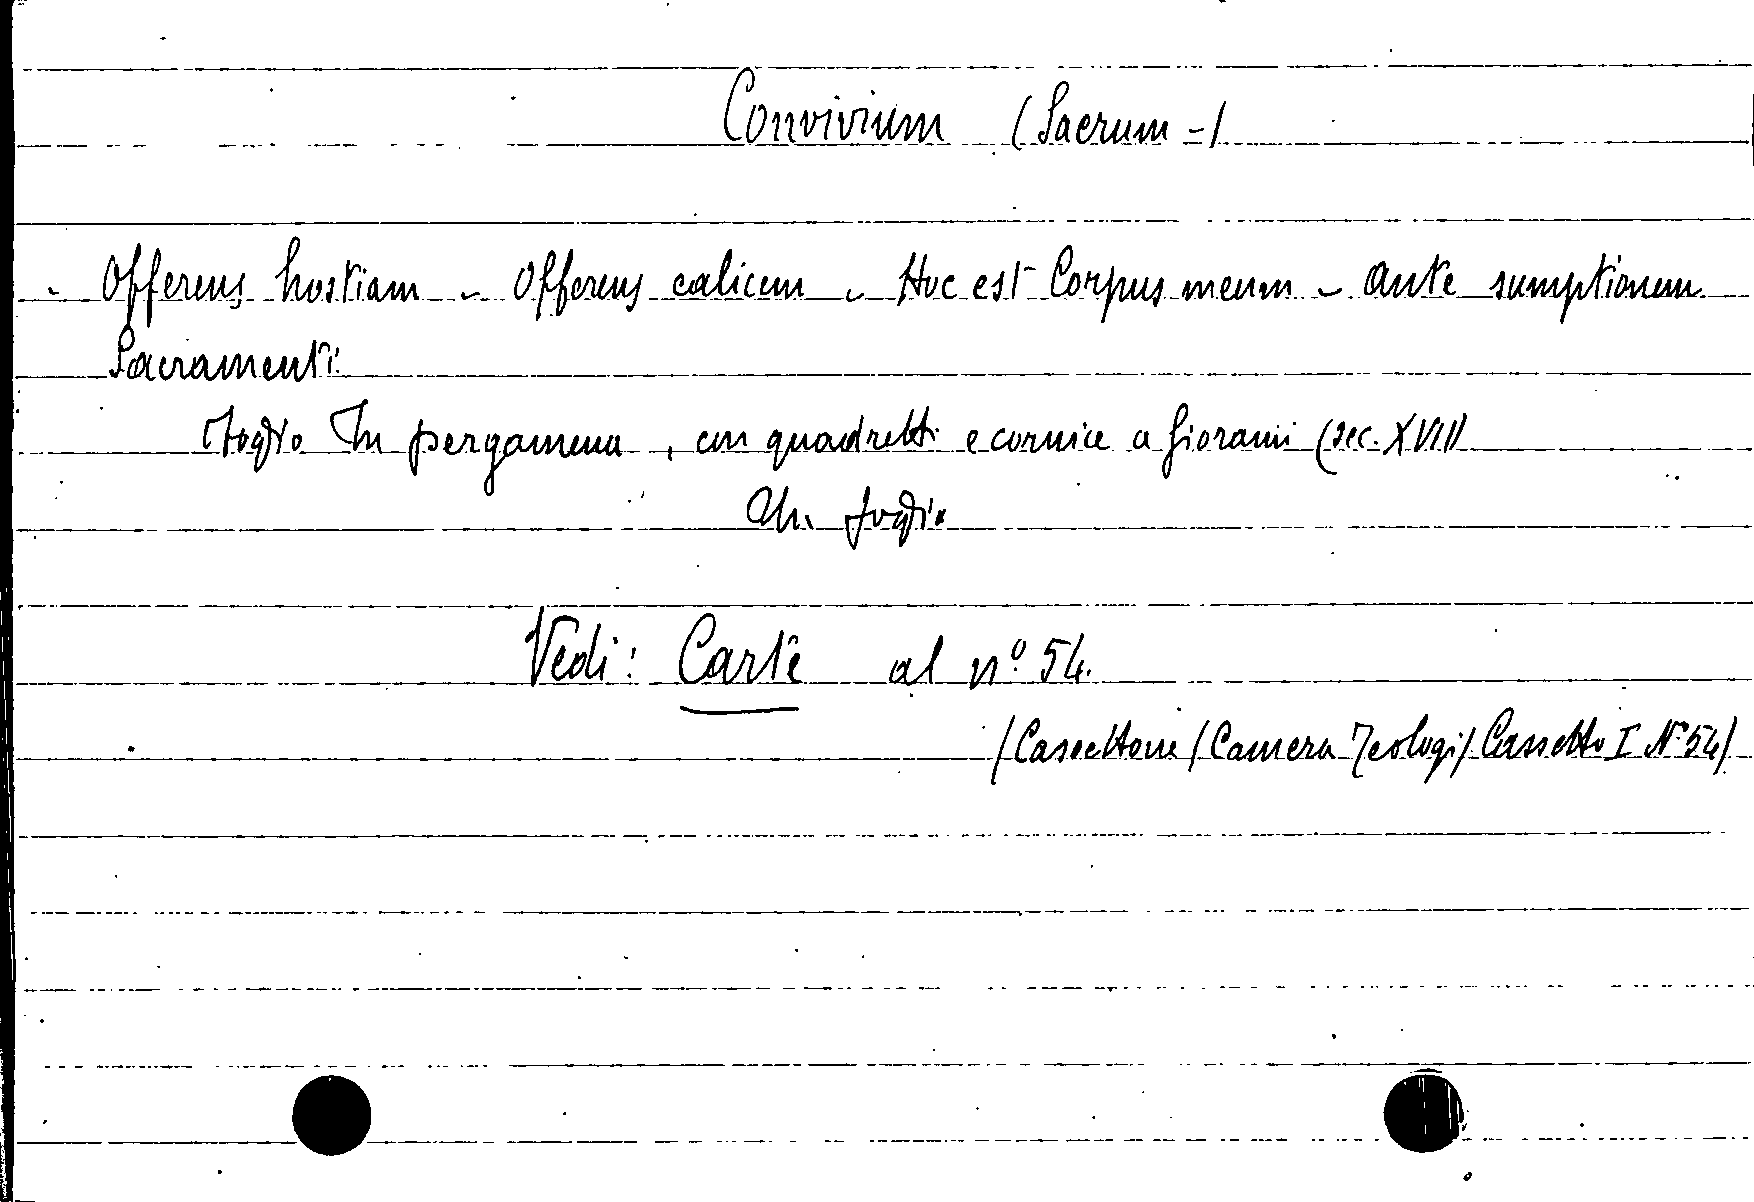 Convivium (Sacrum =)
- Offerens hostiam - Offerens calicem - Hoc est Corpus meum - Ante sumptionem
Sacramenti.
Foglio in pergamena, con quadretti e cornice a fiorami (sec. XVII)
Un foglio
Vedi: Carte al nº 54.
(Cassettone (Camera Teologi) Cassetto I Nº 54)